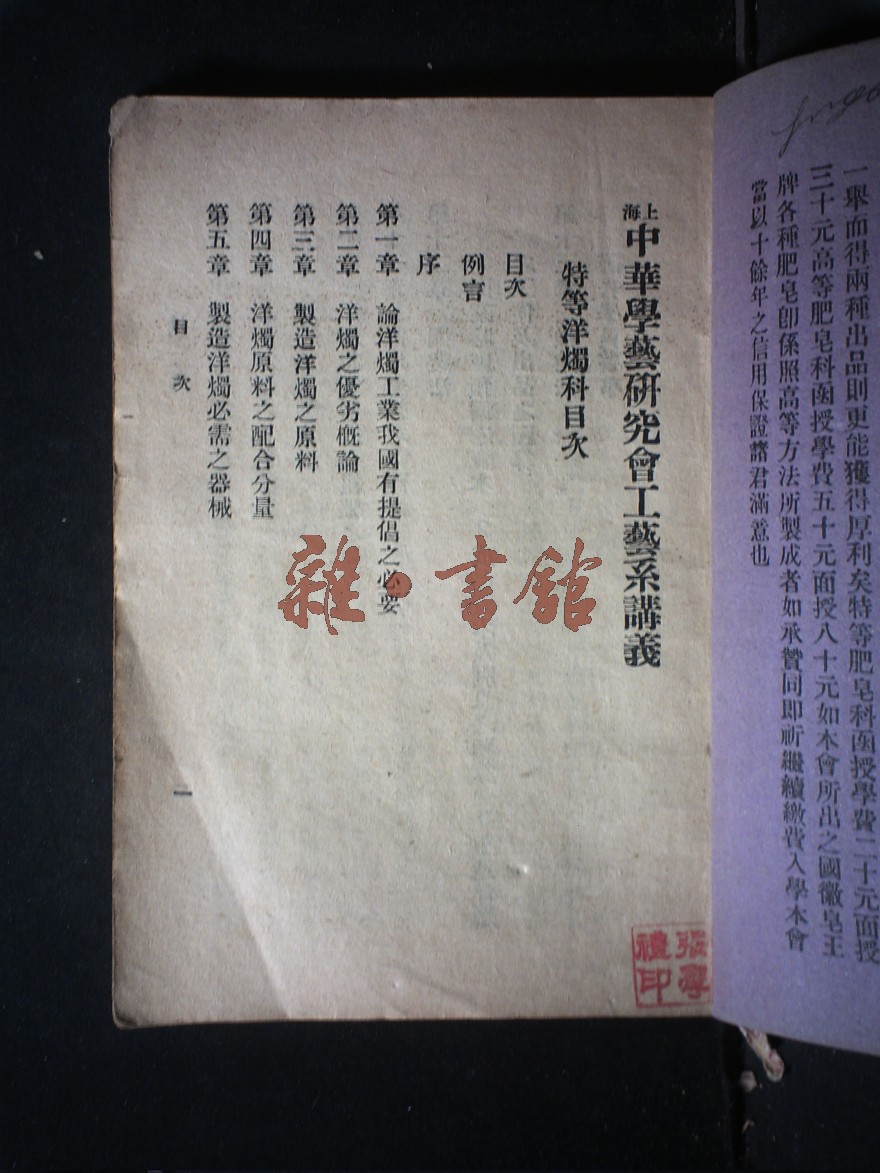 一舉而得兩種出品則更能獲得厚利矣特等肥皂科函授學費二十元面授
三十元高等肥皂科函授學費五十元面授八十元如本會所出之國徽皂王
牌各種肥皂卽係照高等方法所製成者如承贊同即祈繼續繳費入學本會
當以十餘年之信用保證諸君滿意也
上海中華學藝硏究會工藝系講義
特等洋燭科目次
目次
例言
序
第一章 論洋燭工業我國有提倡之必要
第二章 洋燭之優劣概論
第三章 製造洋燭之原料
第四章 洋燭原料之配合分量
第五章 製造洋燭必需之器械
目次
一
雜·書館
禮印